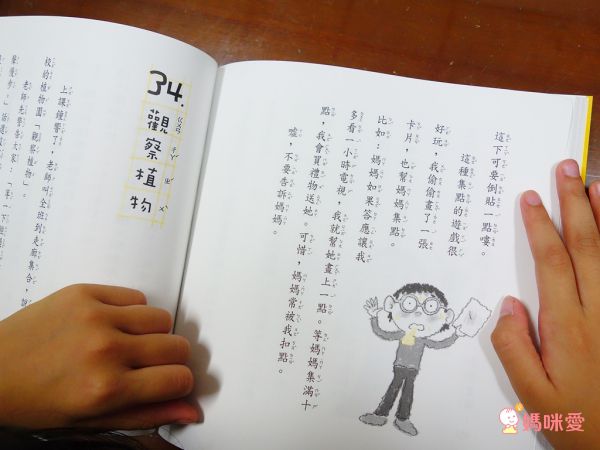 這下可要倒貼一點嘍。
這種集點的遊戲很
好玩，我偷偷畫了一張
卡片，也幫媽媽集點。
比如：媽媽如果答應讓我
多看一小時電視，我就幫她畫上一點。等媽媽集滿十
點，我會買禮物送她。可惜，媽媽常被我扣點。
噓，不要告訴媽媽。
34.
觀察植物
上課鐘響了，老師叫全班到走廊集合，說
校的植物園「觀察植物」。
老師先警告大家：「等一下
媽咪愛